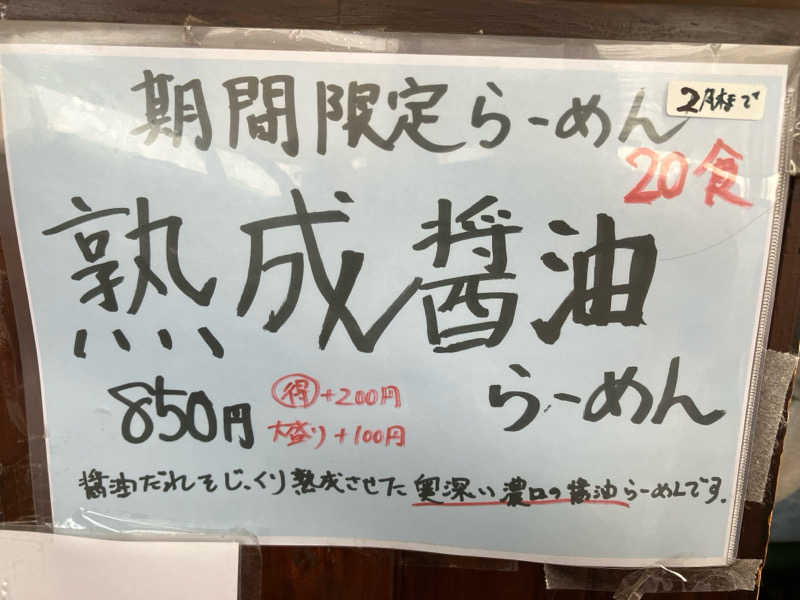 期間限定らーめん
2月末まで
20食
熟成醤油
らーめん
850円
得+200円
大盛り+100円
醤油だれをじっくり熟成させた奥深い濃口の醤油らーめんです。